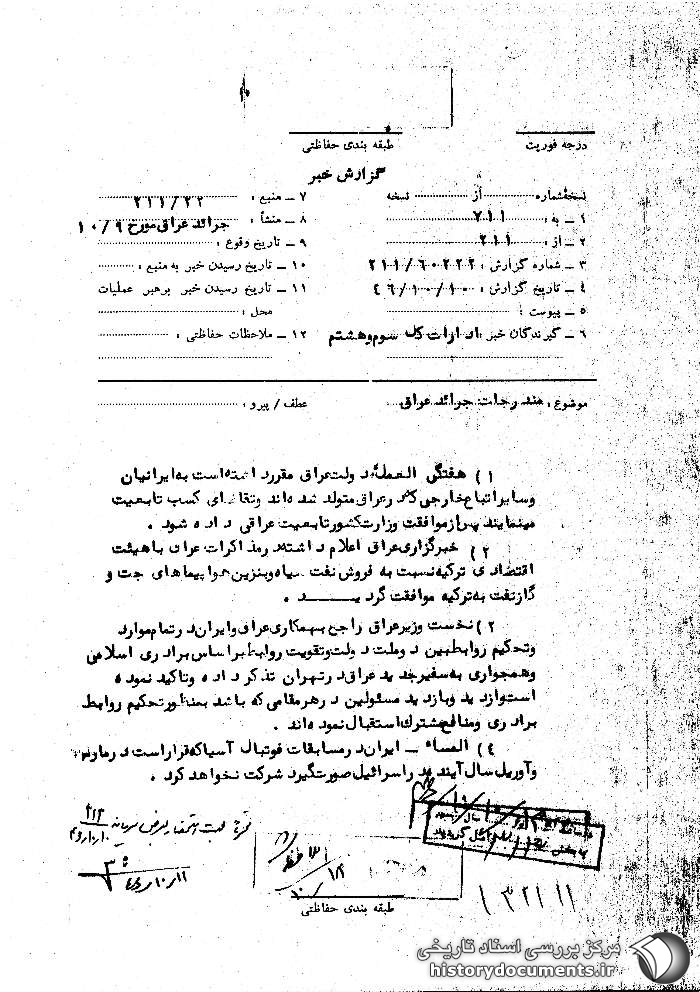 درجه فوریت
طبقه بندی حفاظتی
گزارش خبر
نسخه شماره از نسخه
۱ ـ به : ۷۱۱
۲ ـ از : ۲۱۱
۳ ـ شماره گزارش : ۲۱۱/۶۰۲۲۲
۴ ـ تاریخ گزارش : ۴۶/۱۰/۱۰
۵ ـ پیوست :
۶ ـ گیرندگان خبر : ادارات کل سوم و هشتم
۷ ـ منبع : ۲۱۱/۲۲
۸ ـ منشأ : جرائد عراق مورخ ۱۰/۹
۹ ـ تاریخ وقوع :
۱۰ ـ تاریخ رسیدن خبر به منبع :
۱۱ ـ تاریخ رسیدن خبر برهبر عملیات
محل :
۱۲ ـ ملاحظات حفاظتی :
موضوع : مندرجات جرائد عراق
عطف / پیرو :
۱) هفتگی العمله دولت عراق مقرر داشته است به ایرانیان
وسایر اتباع خارجی که در عراق متولد شده اند وتقاضای کسب تابعیت
مینمایند پس از موافقت وزارت کشور تابعیت عراقی داده شود .
۲) خبرگزاری عراق اعلام داشته در مذاکرات عراق با هیئت
اقتصادی ترکیه نسبت به فروش نفت سیاه وبنزین هواپیماهای جت و
گاز نفت به ترکیه موافقت گردید .
۲) نخست وزیر عراق راجع بهمکاری عراق وایران در تمام موارد
وتحکیم روابط بین دو ملت دولت وتقویت روابط بر اساس برادری اسلامی
وهمجواری به سفیر جدید عراق در تهران تذکر داده وتاکید نموده
است از دید وبازدید مسئولین در هر مقامی که باشد بمنظور تحکیم روابط
برادری ومنافع مشترك استقبال نموده اند .
۴) المساء ـ ایران در مسابقات فوتبال آسیا که قرار است در ماه
وآوریل سال آینده در اسرائیل صورت گیرد شرکت نخواهد کرد .
طبقه بندی حفاظتی
۱۳۲۱۱۱
مرکز بررسی اسناد تاریخی
historydocuments.ir